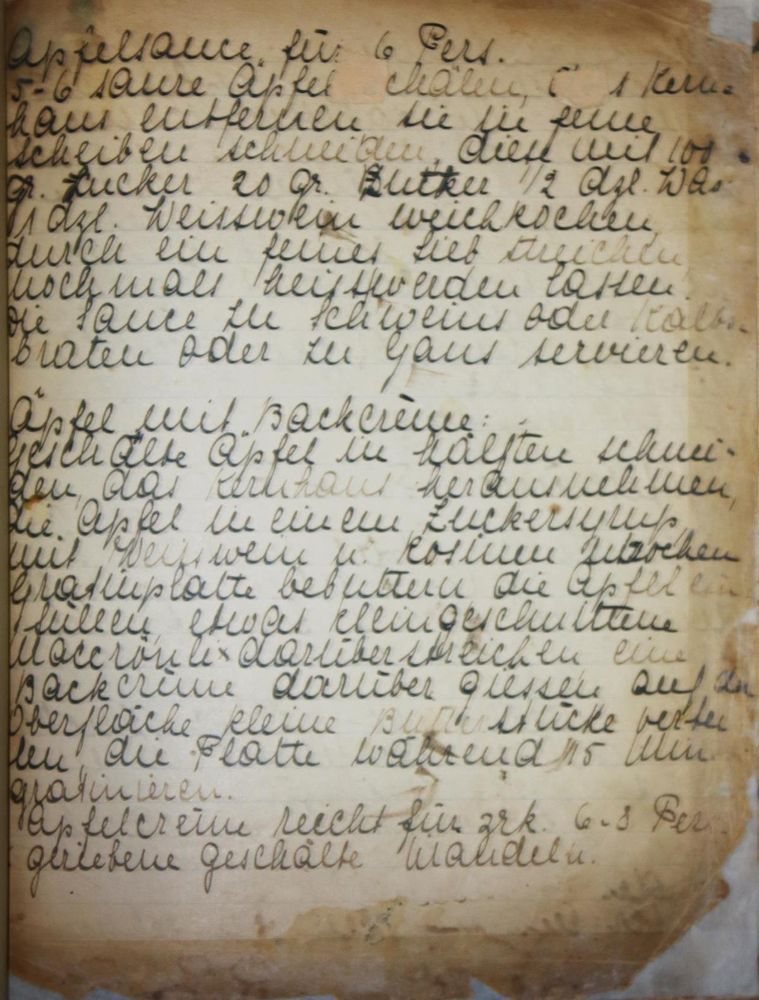 Äpfelsauce für 6 Pers.
5-6 saure Äpfel schälen, Kern-
haus entfernen sie in feine
scheiben schneiden, diese mit 100
gr. Zucker 20 gr. Butter 1/2 dzl. Was
1 dzl. Weisswein weichkochen,
durch ein feines Sieb streichen,
nochmals heisswerden lassen.
die Sauce zu Schweins oder Kalbs-
braten oder zu Gans servieren.
Äpfel mit Backcrème:
Geschälte Äpfel in hälften schnei-
den, das Kernhaus herausnehmen,
die Äpfel in einem Zuckersyrup
mit Weisswein u. Rosinen
Gratinplatte bebuttern die Äpfel ein
füllen, etwas kleingeschnittene
Maccrönli darüberstreichen eine
Backcrème darüber giessen auf der
Oberfläche kleine Butterstücke vertei
len, die Platte während 15 Min.
gratinieren.
Äpfelcrème reicht für zrk. 6-8 Pers.
geriebene geschälte Mandeln.